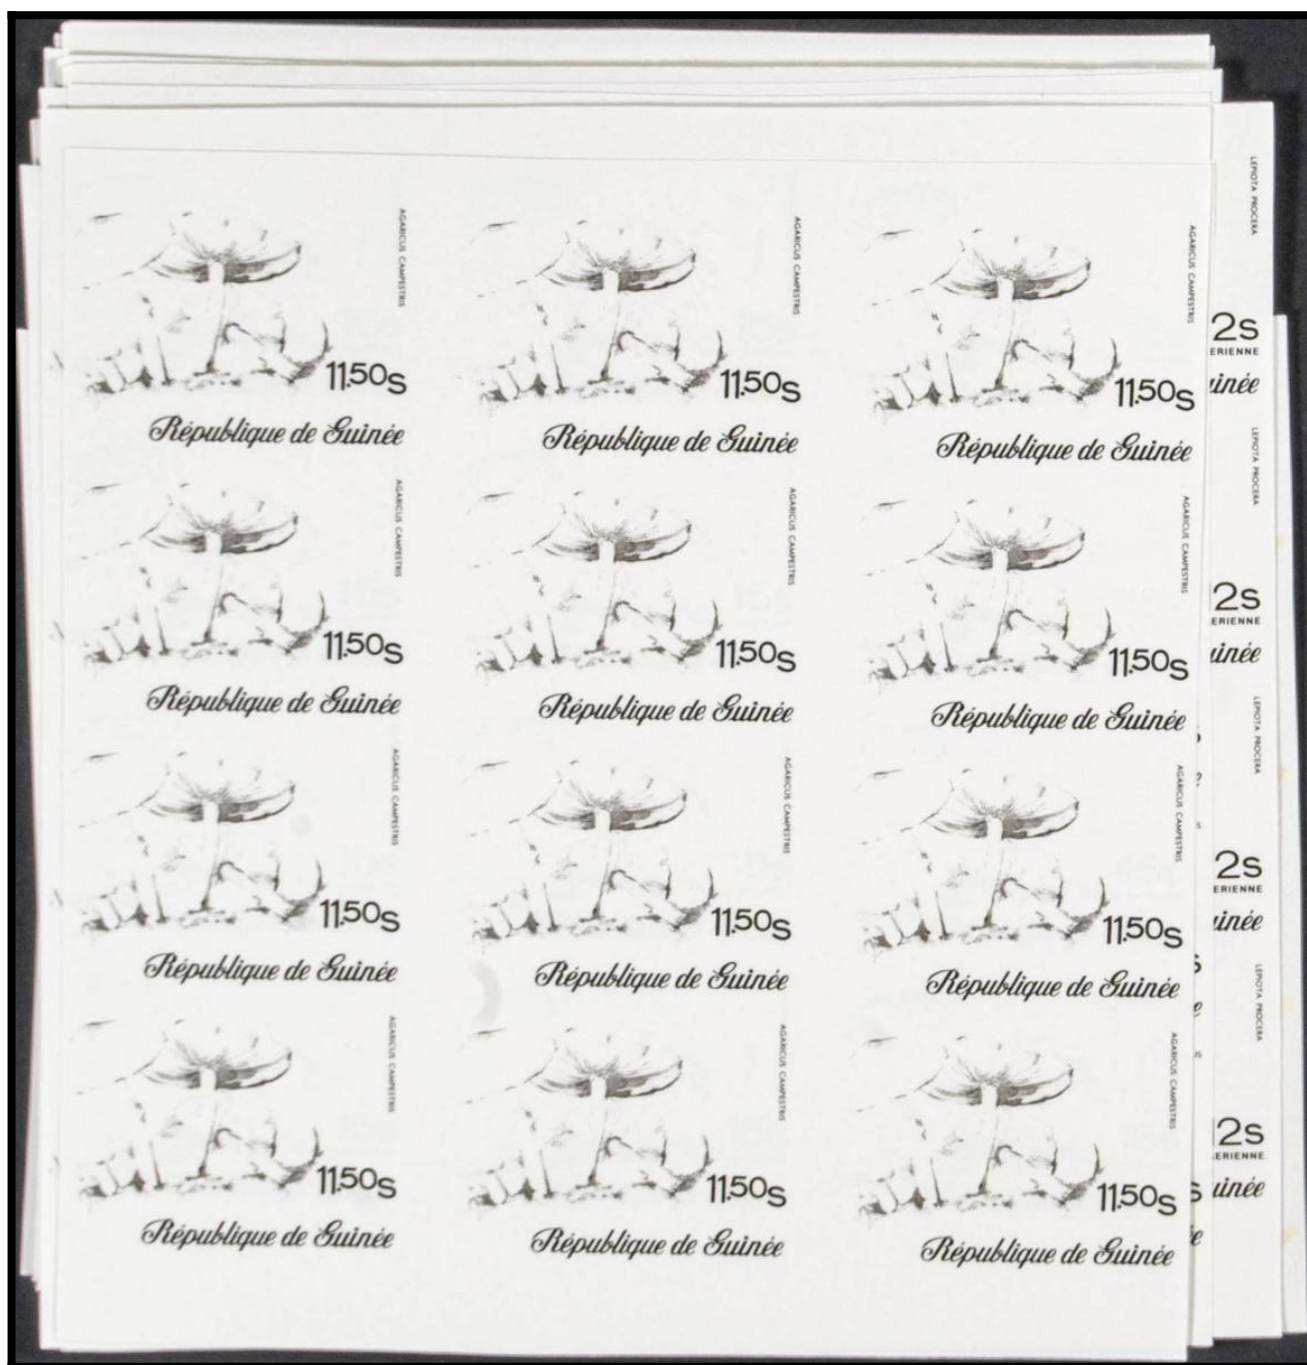 AGARICUS CAMPESTRIS
11.50s
République de Guinée
AGARICUS CAMPESTRIS
11.50s
République de Guinée
AGARICUS CAMPESTRIS
11.50s
République de Guinée
AGARICUS CAMPESTRIS
11.50s
République de Guinée
AGARICUS CAMPESTRIS
11.50s
République de Guinée
AGARICUS CAMPESTRIS
11.50s
République de Guinée
AGARICUS CAMPESTRIS
11.50s
République de Guinée
AGARICUS CAMPESTRIS
11.50s
République de Guinée
AGARICUS CAMPESTRIS
11.50s
République de Guinée
AGARICUS CAMPESTRIS
11.50s
République de Guinée
AGARICUS CAMPESTRIS
11.50s
République de Guinée
AGARICUS CAMPESTRIS
11.50s
République de Guinée
LEPIOTA PROCERA
2s
ERIENNE
uinée
LEPIOTA PROCERA
2s
ERIENNE
uinée
LEPIOTA PROCERA
2s
ERIENNE
uinée
LEPIOTA PROCERA
12s
ERIENNE
uinée